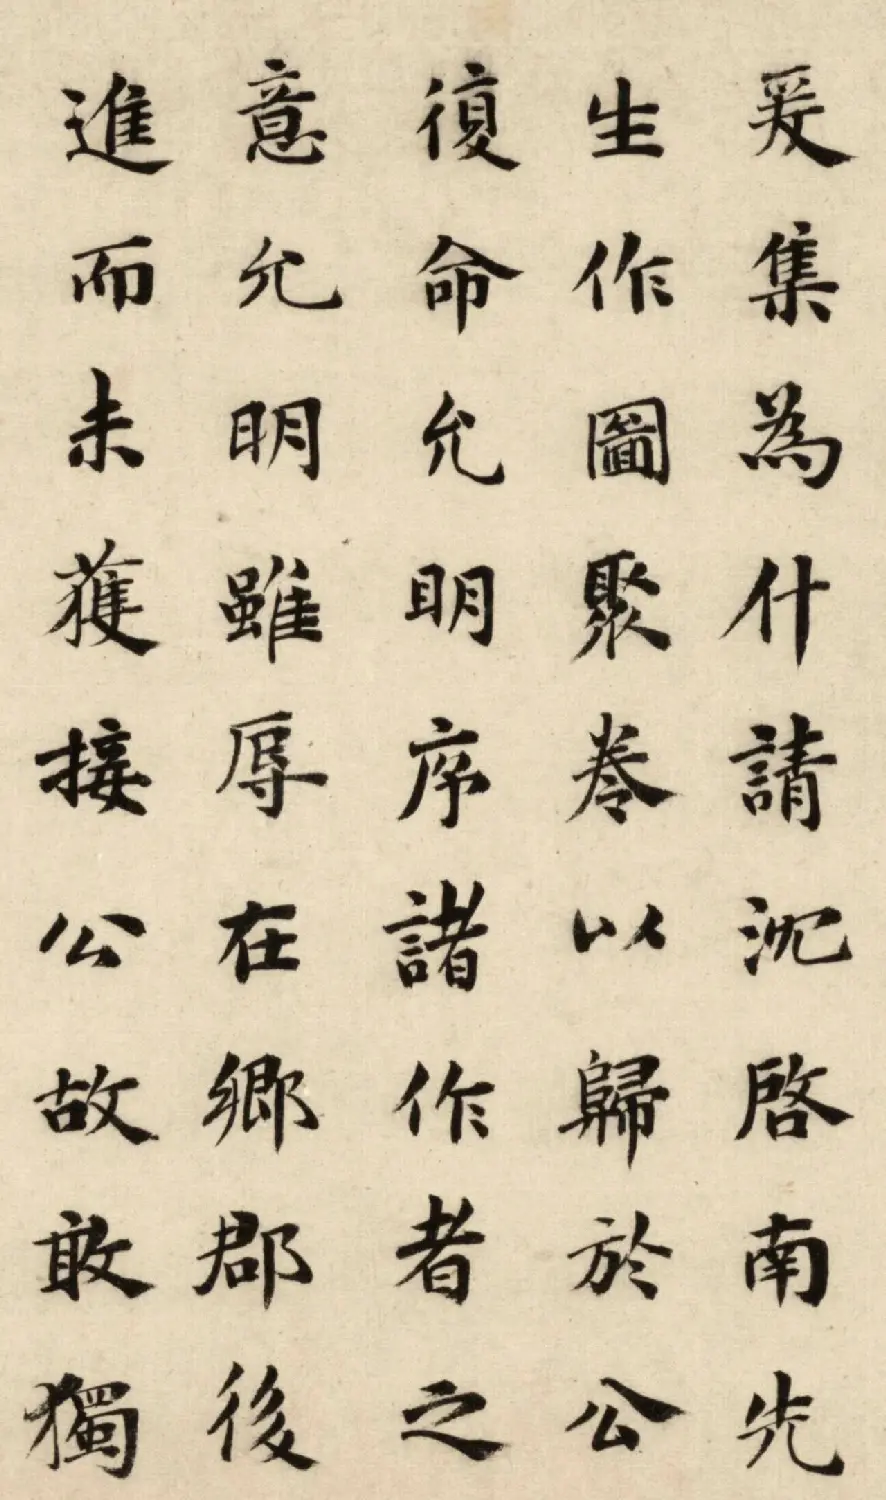 爰集為什請沈啓南先
生作圖聚卷以歸於公
復命允明序諸作者之
意允明雖辱在鄉郡後
進而未獲接公故敢獨